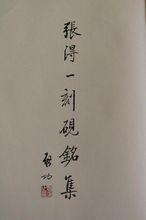 張得一刻硯銘集
啓功